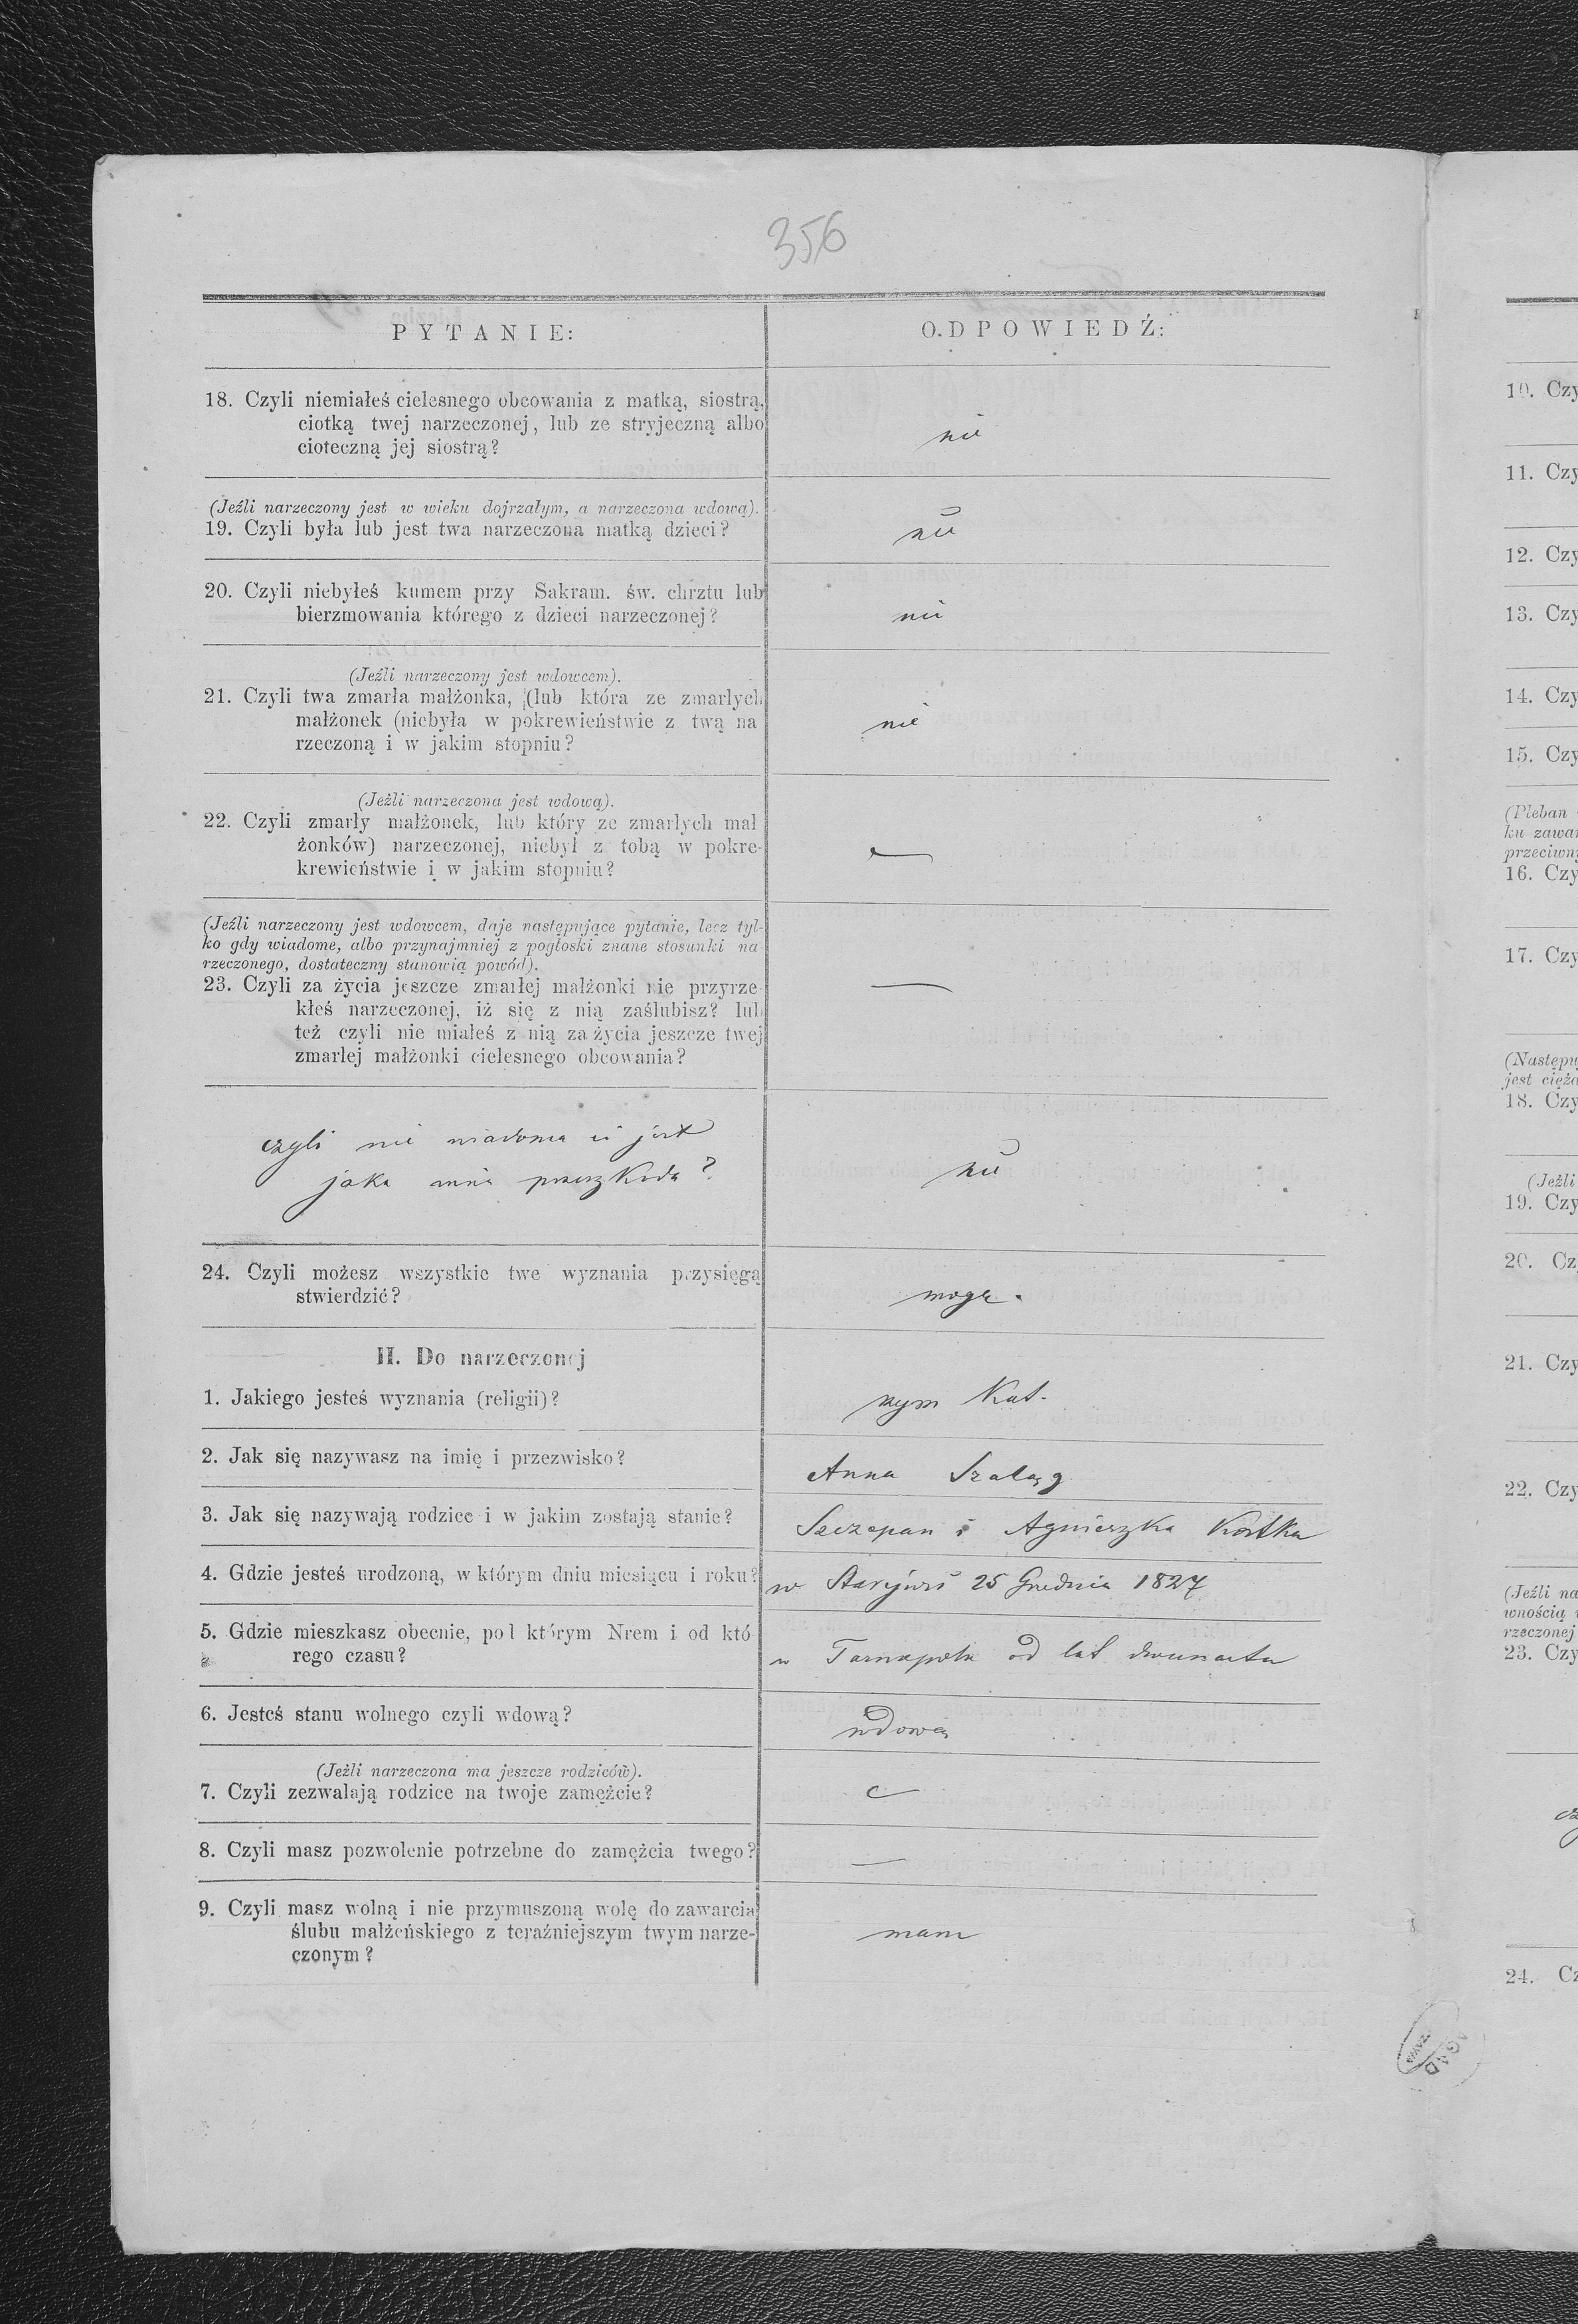 356
PYTANIE:
ODPOWIEDŹ:
18. Czyli niemiałeś cielesnego obcowania z matką, siostrą,
ciotką twej narzeczonej, lub ze stryjeczną albo
cioteczną jej siostrą?
nie
(Jeźli narzeczony jest w wieku dojrzałym, a narzeczona wdową).
19. Czyli była lub jest twa narzeczona matką dzieci?
nie
20. Czyli niebyłeś kumem przy Sakram. św. chrztu lub
bierzmowania którego z dzieci narzeczonej?
nie
(Jeźli narzeczony jest wdowcem).
21. Czyli twa zmarła małżonka, (lub która ze zmarłych
małżonek (niebyła w pokrewieństwie z twą na
rzeczoną i w jakim stopniu?
nie
(Jeźli narzeczona jest wdową).
22. Czyli zmarły małżonek, lub który ze zmarłych mał
żonków) narzeczonej, niebył z tobą w pokre-
krewieństwie i w jakim stopniu?
—
(Jeźli narzeczony jest wdowcem, daje następujące pytanie, lecz tyl-
ko gdy wiadome, albo przynajmniej z pogłoski znane stosunki na
rzeczonego, dostateczny stanowią powód).
23. Czyli za życia jeszcze zmarłej małżonki nie przyrze-
kłeś narzeczonej, iż się z nią zaślubisz? lub
też czyli nie miałeś z nią za życia jeszcze twej
zmarłej małżonki cielesnego obcowania?
—
czyli nie wiadoma ci jest
jaka inna przeszkoda?
nie
24. Czyli możesz wszystkie twe wyznania przysięgą
stwierdzić?
mogę.
II. Do narzeczonej
1. Jakiego jesteś wyznania (religii)?
rzym Kat.
2. Jak się nazywasz na imię i przezwisko?
Anna Szeląg
3. Jak się nazywają rodzice i w jakim zostają stanie?
Szczepan i Agnieszka Kostka
4. Gdzie jesteś urodzoną, w którym dniu miesiącu i roku?
w 25 Grudnia 1827
5. Gdzie mieszkasz obecnie, pod którym Nrem i od któ
rego czasu?
w Tarnopolu od lat dwunastu
6. Jesteś stanu wolnego czyli wdową?
wdową
(Jeżli narzeczona ma jeszcze rodziców).
7. Czyli zezwalają rodzice na twoje zamęźcie?
—
8. Czyli masz pozwolenie potrzebne do zamężcia twego?
—
9. Czyli masz wolną i nie przymuszoną wolę do zawarcia
ślubu małżeńskiego z teraźniejszym twym narze-
czonym?
mam
AGAD
10. Czy
11. Czy
12. Czy
13. Czy
14. Czy
15. Czy
(Pleban
ku zawar
przeciwn
16. Czy
17. Czy
(Następu
jest cięża
18. Czy
(Jeźli
19. Czy
20. Cz
21. Czy
22. Czy
(Jeźli na
wnością
rzeczonej
23. Czy
24. Cz